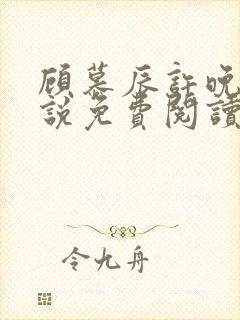 顾慕辰許晚
說免費閱讀
令九舟